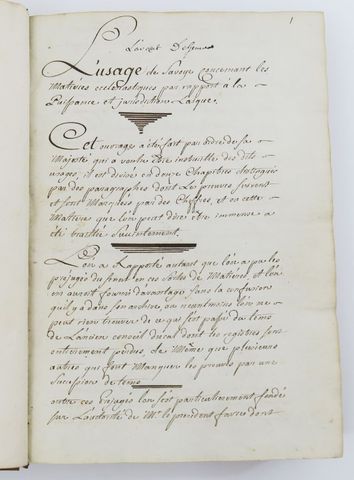 1
L'usage de Savoye concernant les
Matières ecclesiastiques par rapport à la
Puissance et jurisdiction Laïque.
Cet ouvrage a été fait par ordre de sa
Majesté qui a voulu être instruitte des dits
usages, il est divisé en douze Chapitres distingués
par des paragraphes dont les preuves suivent
et sont marquées par des Chiffres, et en cette
Matière que l'on peut dire être immense a
été traittée succintement.
L'on a rapporté autant que l'on a pu les
préjugés du senat en ces sortes de Matières, et l'on
en auroit fourni d'avantage sans la confusion
qu'il y a dans son archive, ou neantmoins l'on ne
peut rien trouver de ce qui s'est passé du tems
de l'ancien conseil ducal dont les registres sont
entierement perdus, de Même que plusieurs
autres qui font manquer les preuves par une
Succession de tems
outre ces préjugés l'on s'est particulierement fondé
sur l'autorité de Mr. le president favre dont